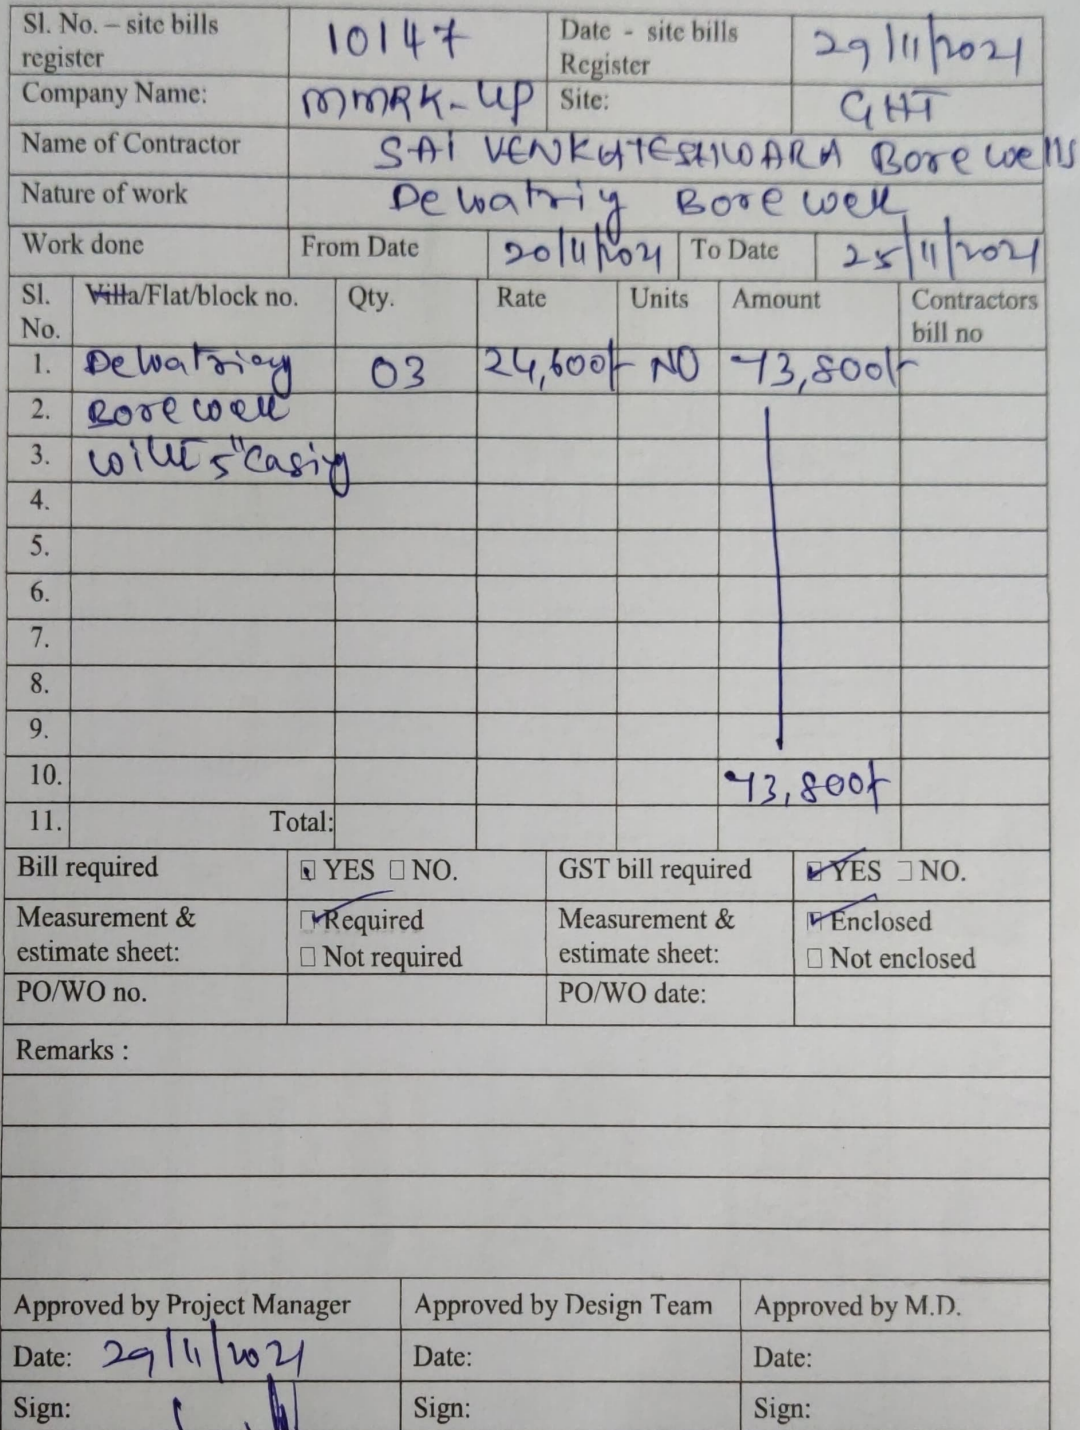 Sl. No. – site bills register 10147 Date - site bills Register 29/11/2021
Company Name: MMRK-UP Site: GHT
Name of Contractor SAI VENKATESHWARA Borewells
Nature of work Dewatring Borewell
Work done From Date 20/11/2021 To Date 25/11/2021
Sl. No. Villa/Flat/block no. Qty. Rate Units Amount Contractors bill no
1. Dewatring 03 24,600/- NO 73,800/-
2. Borewell
3. with 5" Casing
4.
5.
6.
7.
8.
9.
10. 73,800/-
11. Total:
Bill required YES NO. GST bill required YES NO.
Measurement & estimate sheet: Required Not required Measurement & estimate sheet: Enclosed Not enclosed
PO/WO no. PO/WO date:
Remarks :
Approved by Project Manager Approved by Design Team Approved by M.D.
Date: 29/11/2021 Date: Date:
Sign: Sign: Sign: